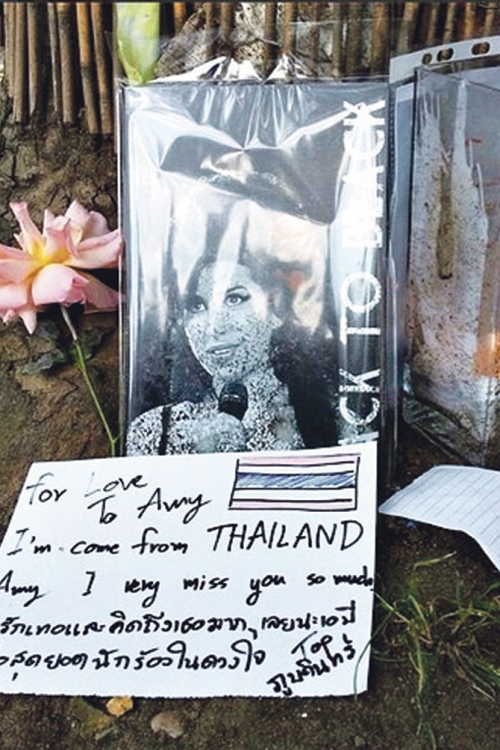 BACK TO BLACK
for Love
To Amy
I'm come from THAILAND
Amy I very miss you so much
รักเทอและคิดถึงเธอมากๆเลยนะเอมี่
สุดยอดนักร้องในดวงใจ
Top
ภูบดินทร์